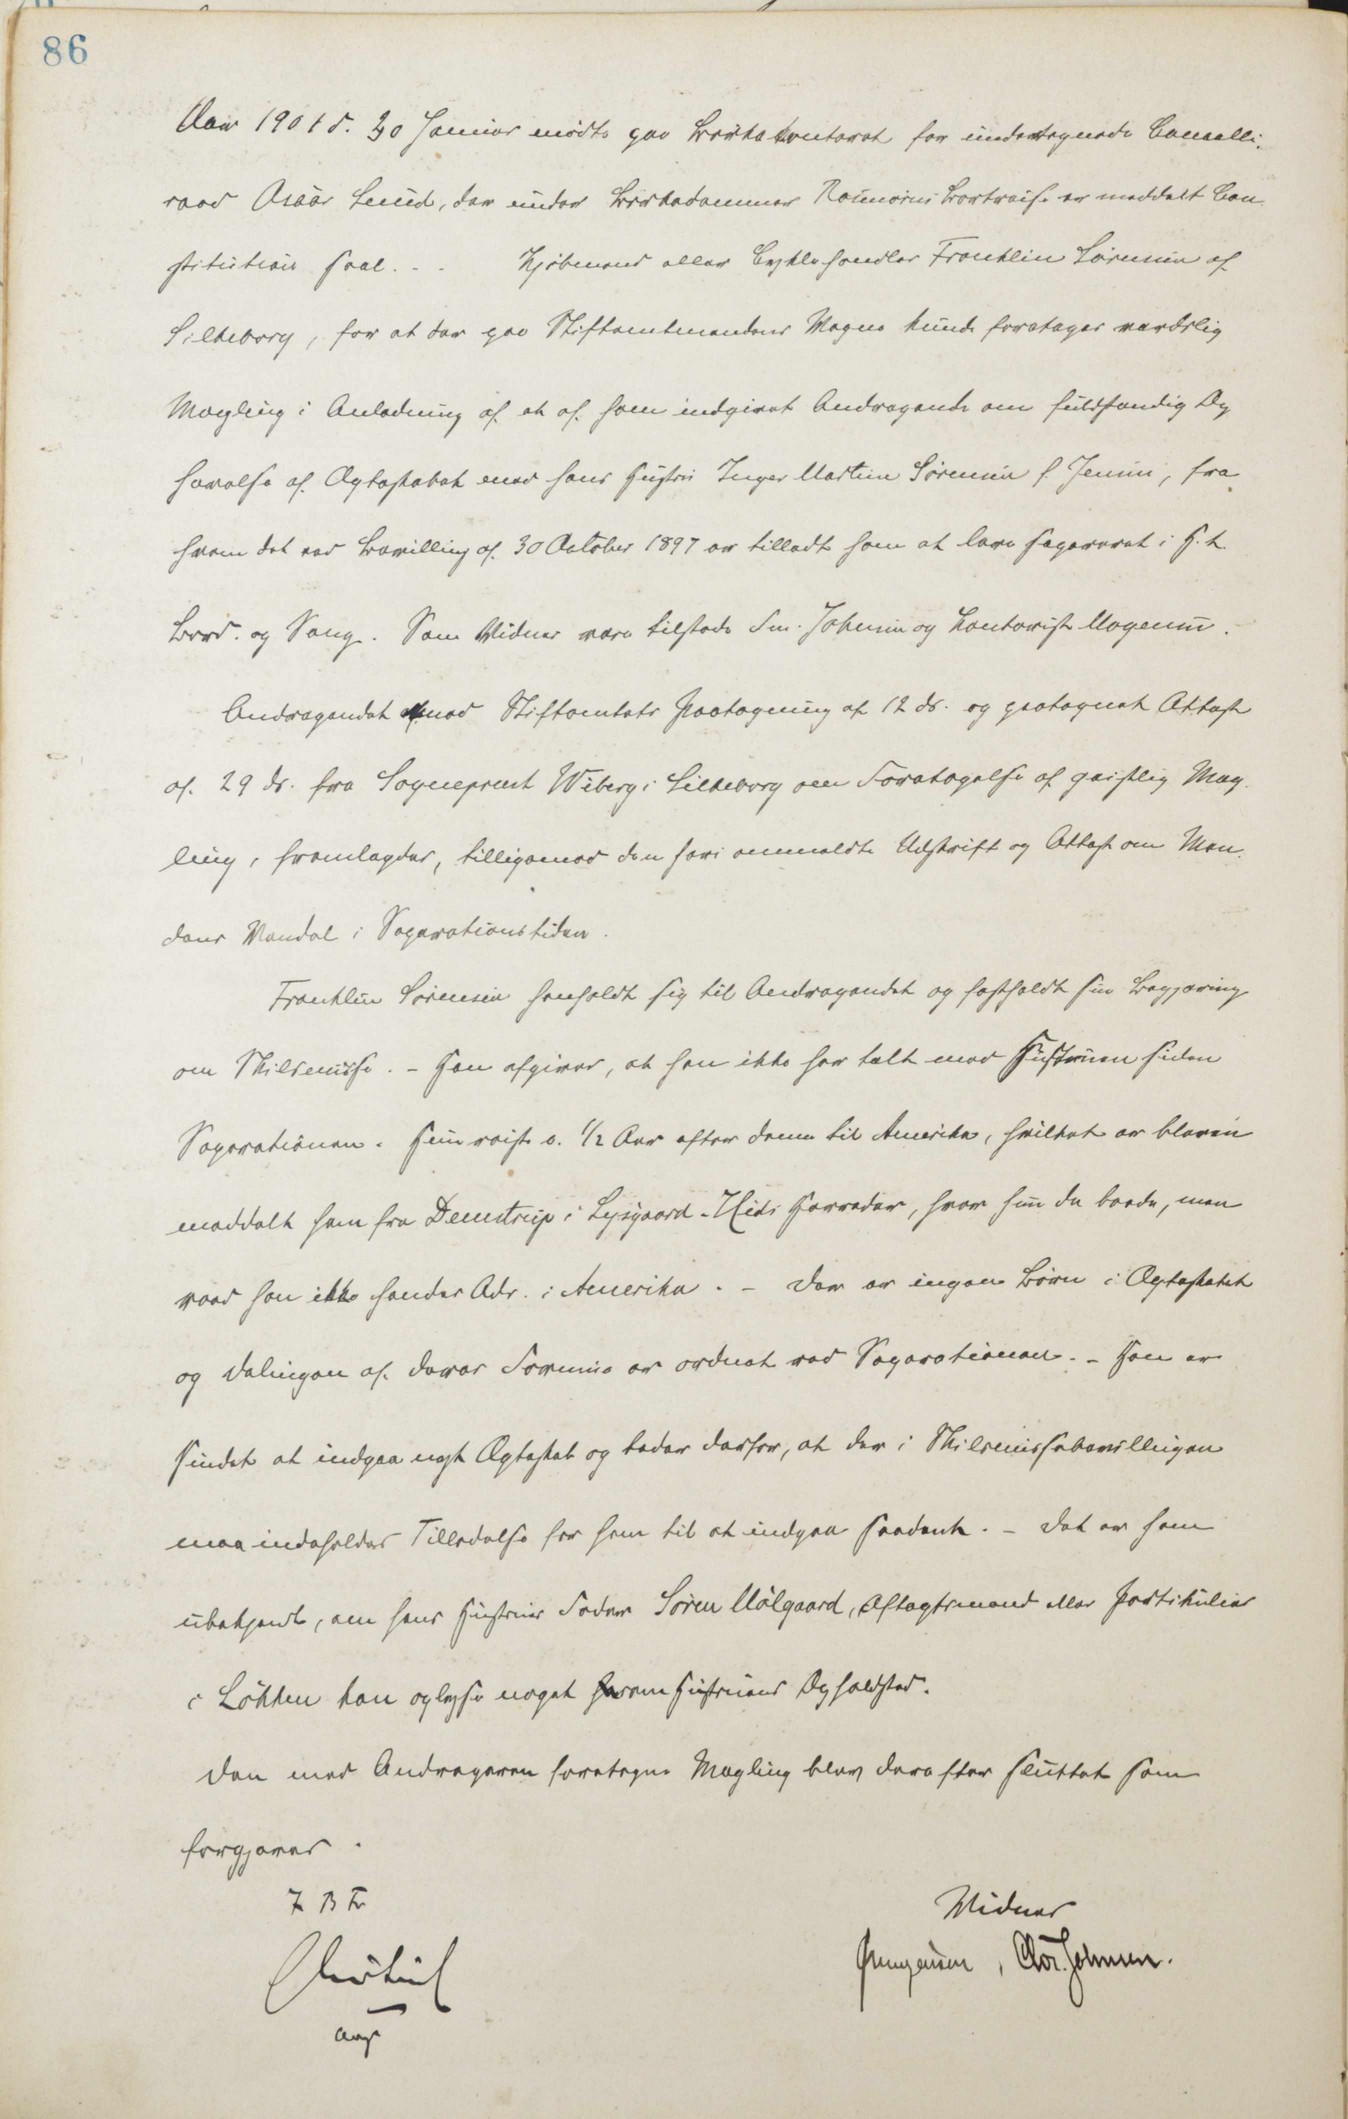 86
Aar 1901 d. 30 Januar mødte paa Birkekontoret for undertegnede Cancelli-
raad Oscar Lund, der under Birkedommer Rosenørns Bortreise er meddelt Con-
stitution saal. . . Kjøbmand eller Cyklehandler Franklin Sørensen af
Silkeborg, for at der paa Stiftamtmandens Vegne kunde foretages verdslig
Mægling i Anledning af et af ham indgivet Andragende om fuldstændig Op-
hævelse af Ægteskabet med hans Hustru Inger Martine Sørensen f. Jensen, fra
hvem det ved Bevilling af 30 October 1897 er tilladt ham at leve separeret i H. t.
Bord. og Seng. Som Vidner vare tilstede Fm. Johnsen og Kontorist Mogensen.
Andragendet med Stiftamtets Paategning af 12 ds. og paategnet Attest
af. 29 ds. fra Sognepræst Wiberg i Silkeborg om Foretagelse af geistlig Mæg-
ling, fremlagdes, tilligemed den heri ommeldte Udskrift og Attest om Man-
dens Vandel i Separationstiden.
Franklin Sørensen henholdt sig til Andragendet og fastholdt sin Begjæring
om Skilsmisse. - Han afgiver, at han ikke har talt med Hustruen siden
Separationen. Hun reiste c. 1/2 Aar efter denne til Amerika, hvilket er bleven
meddelt ham fra Demstrup i Lysgaard-Hids Herreder, hvor hun da boede, men
veed han ikke hendes Adr. i Amerika. - Der er ingen Børn i Ægteskabet
og Delingen af. deres Formue er ordnet ved Separationen. - Han er
sindet at indgaa nyt Ægteskab og beder derfor, at der i Skilsmissebevillingen
maa indeholdes Tilladelse for ham til at indgaa saadant. - Det er ham
ubekjendt, om hans Hustrus Fader Søren Mølgaard, Aftægtsmand eller Partikulier
i Løkken kan oplyse noget om Hustruens Opholdssted.
Den med Andrageren foretagne Mægling blev derefter sluttet som
forgjæves.
Vidner
Chr. Johnsen.